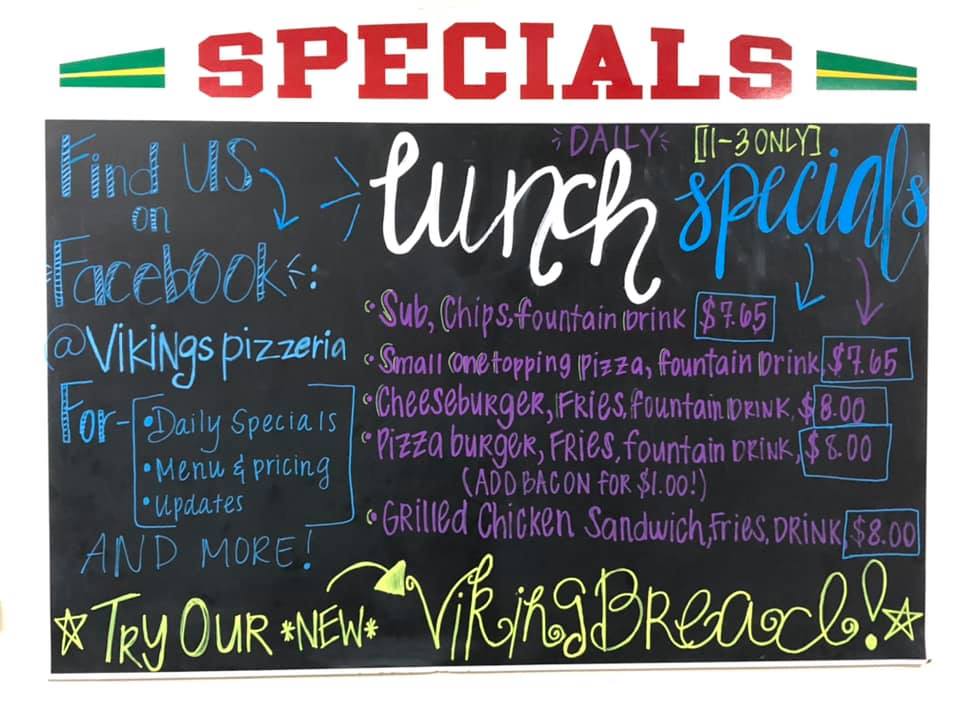 SPECIALS
Find US
on
Facebook:
@Vikings pizzeria
For-
• Daily Specials
• Menu & pricing
• Updates
AND MORE!
DAILY [11-3 ONLY]
lunch specials
• Sub, Chips, fountain Drink $7.65
• Small one topping Pizza, fountain Drink $7.65
• Cheeseburger, Fries, fountain DRINK, $8.00
• Pizza burger, Fries, fountain DRINK, $8.00
(ADD BACON FOR $1.00!)
• GRilled Chicken Sandwich, Fries, DRINK $8.00
TRy OUR *NEW* Viking BRead!